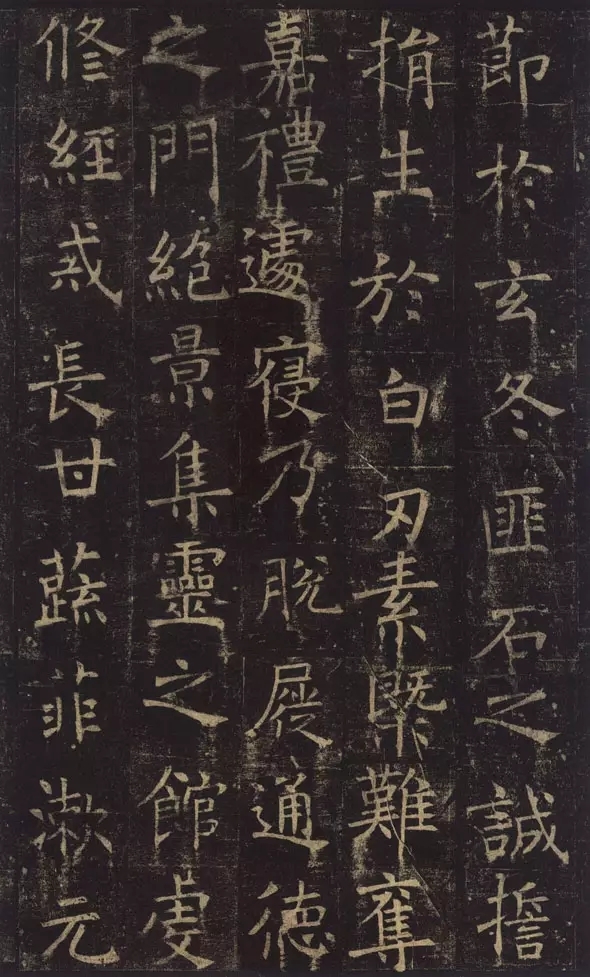 節於玄冬匪石之誠擔
捐生於白刃素槩難奪
嘉禮遽寑乃脫屣通德
之門絕景集靈之館虔
修經戒長甘蔬菲漱元